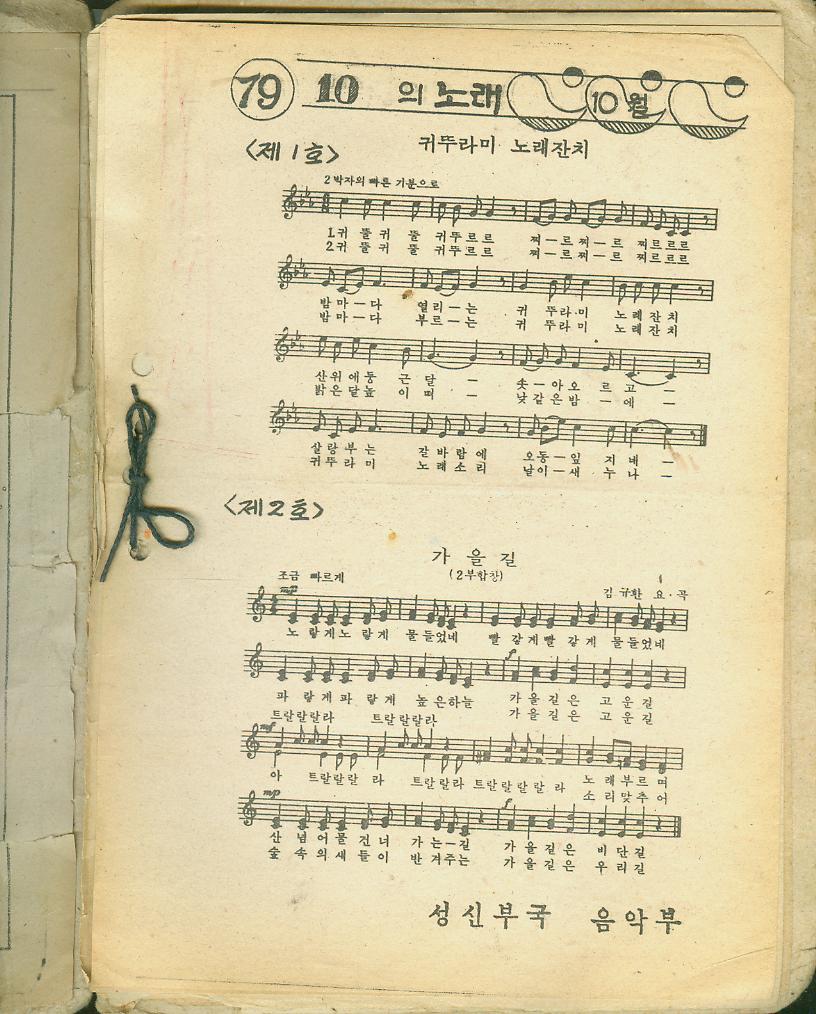 79 10 의 노래 10월
<제1호>
귀뚜라미 노래잔치
2박자의 빠른 기분으로
1.귀 뚤귀 뚤 귀뚜르르 찌ー르찌ー르 찌르르르
2.귀 뚤귀 뚤 귀뚜르르 찌ー르찌ー르 찌르르르
밤마ー다 열리ー는 귀 뚜라미 노래잔치
밤마ー다 부르ー는 귀 뚜라미 노래잔치
산위에둥 근달 ー 솟ー아오 르고 ー
밝은달높 이떠 ー 낮같은밤 ー에 ー
살랑부는 갈바람에 오동ー잎 지네 ー
귀뚜라미 노래소리 날이ー새 누나 ー
<제2호>
가을길
(2부합창)
조금 빠르게
김규환 요·곡
mp
노랗게노랗게 물들었네 빨갛게빨갛게 물들었네
f
파랗게파랗게 높은하늘 가을길은 고운길
트랄랄랄라 트랄랄랄라 가을길은 고운길
mf
아 트랄랄랄 라 트랄랄라 트랄랄랄랄 라 노래부르며
소리맞추어
mp
f
산넘어물건너 가는ー길 가을길은 비단길
숲속의새들이 반겨주는 가을길은 우리길
성신부국 음악부